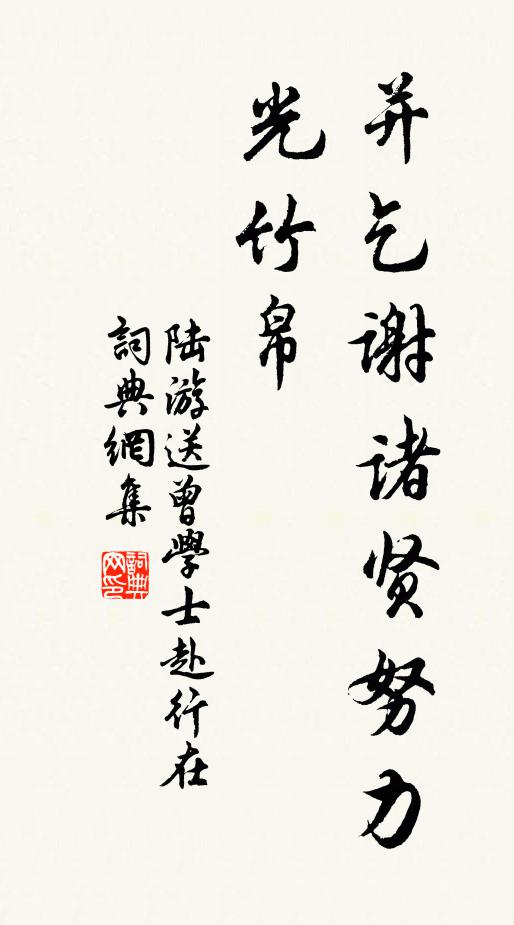 并乞谢诸贤努力
光竹帛
陆游送曾學士赴行在
詞典網集
詞典
网印